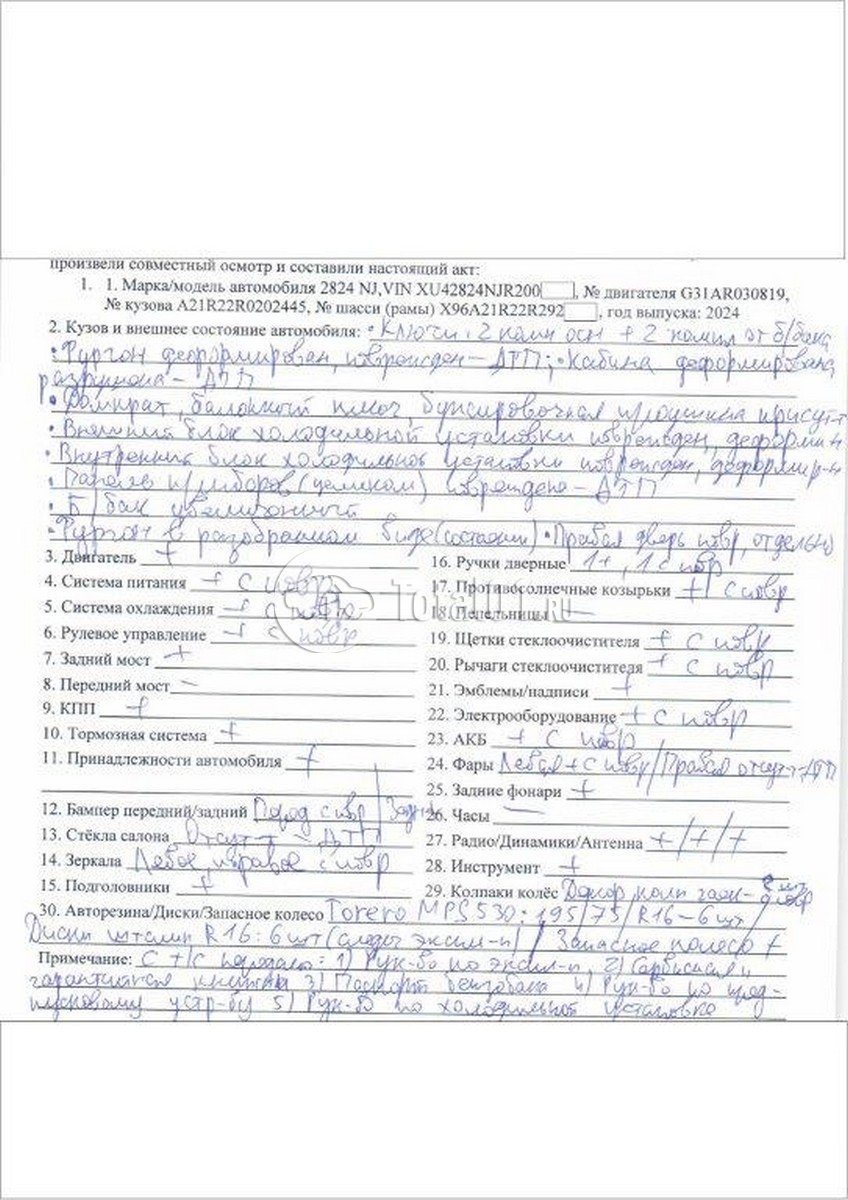 произвели совместный осмотр и составили настоящий акт:
1. 1. Марка/модель автомобиля 2824 NJ,VIN XU42824NJR200, № двигателя G31AR030819,
№ кузова A21R22R0202445, № шасси (рамы) X96A21R22R292, год выпуска: 2024
2. Кузов и внешнее состояние автомобиля: • Ключи: 2 компл осн + 2 компл от б/бака
• Фургон деформирован, поврежден – ДТП; • Кабина деформирована,
– ДТП
• Домкрат, балонный ключ, буксировочная проушина присутт
• Внешний блок холодильной установки поврежден, деформи-н
• Внутренний блок холодильной установки поврежден, деформир-н
• Панель приборов (целиком) повреждена – ДТП
• Б/бак увеличенный
• Фургон в разобранном виде (состоянии) • Правая дверь повр, отдельно
3. Двигатель +
4. Система питания + с повр
5. Система охлаждения + повр
6. Рулевое управление + с повр
7. Задний мост +
8. Передний мост –
9. КПП +
10. Тормозная система +
11. Принадлежности автомобиля +
12. Бампер передний/задний с повр /
13. Стёкла салона Отсут-т – ДТП
14. Зеркала Левое, правое с повр
15. Подголовники +
16. Ручки дверные 1+, 1 с повр
17. Противосолнечные козырьки + с повр
18. Пепельницы –
19. Щетки стеклоочистителя + с повр
20. Рычаги стеклоочистителя + с повр
21. Эмблемы/надписи +
22. Электрооборудование + с повр
23. АКБ + с повр
24. Фары Левая + с повр / Правая отсут-т ДТП
25. Задние фонари +
26. Часы –
27. Радио/Динамики/Антенна +/+/+
28. Инструмент +
29. Колпаки колёс
30. Авторезина/Диски/Запасное колесо Torero MPS 530: 195/75/R16 – 6 шт /
Диски штамп R16: 6 шт (следы экспл-и) / Запасное колесо +
Примечание: С т/с передали: 1) Рук-во по экспл-и, 2) Сервисная и
гарантийная книжка 3) Паспорт бензобака 4) Рук-во по пред-
пусковому устр-ву 5) Рук-во по холодильной установке
Total01.RU